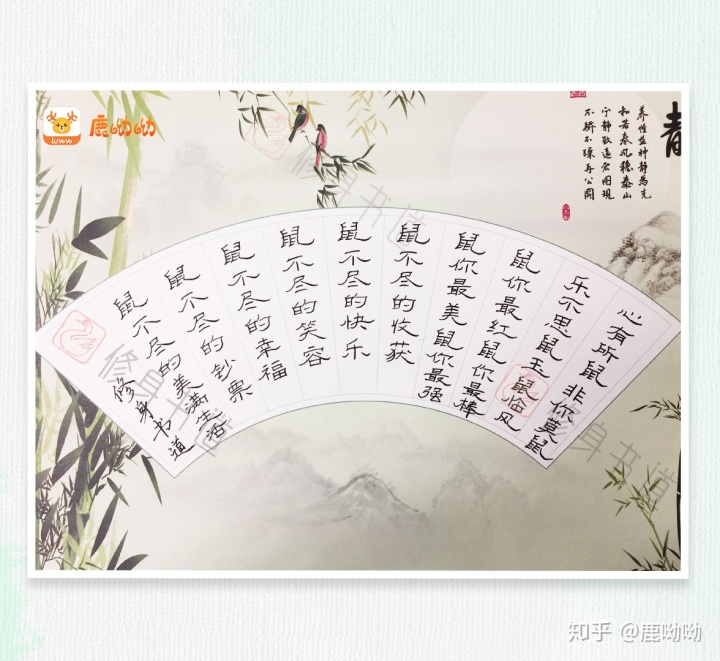 LuYoYo
鹿呦呦
养性益神静为先
和若春风稳泰山
宁静致远
不骄不躁
心有所鼠 非你莫鼠
乐不思鼠 玉鼠临风
鼠你最红 鼠你最棒
鼠你最美 鼠你最强
鼠不尽的收获
鼠不尽的快乐
鼠不尽的笑容
鼠不尽的幸福
鼠不尽的钞票
鼠不尽的美满生活
修身书道
修身书道
修身书道
修身书道
知乎 @鹿呦呦